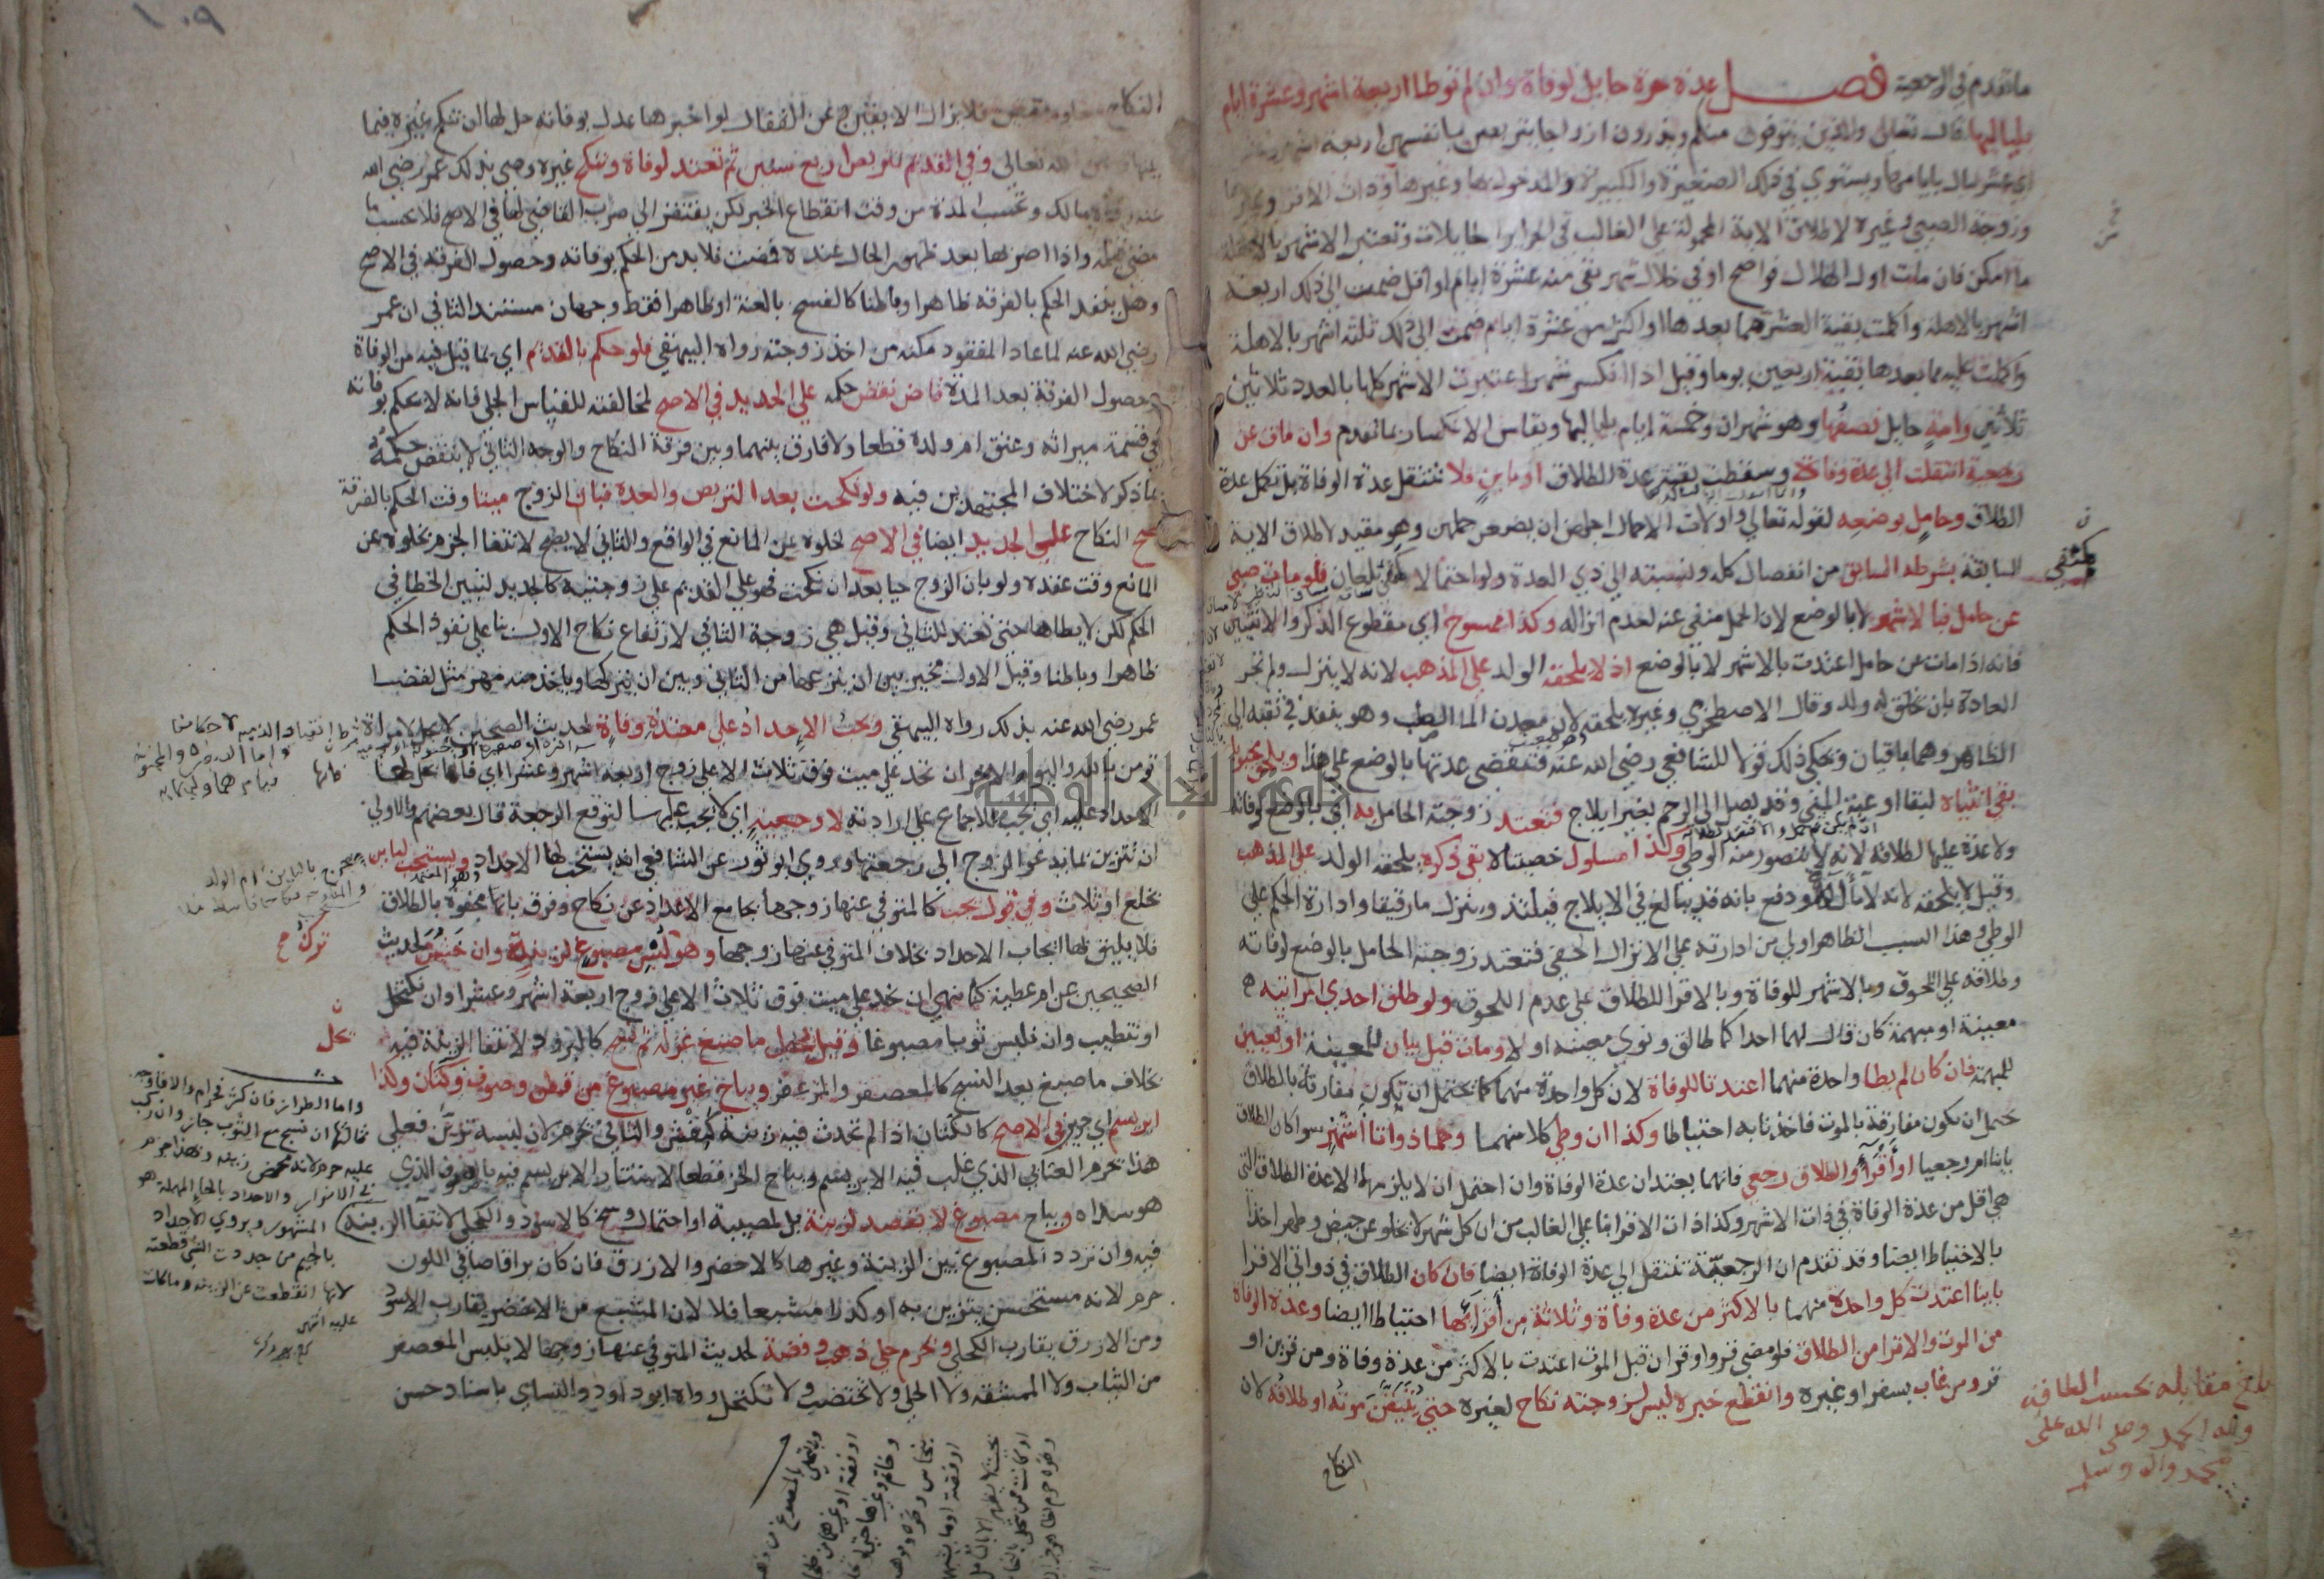 ما تقدم في الرجعة فصل عدة حرة حايل لوفاة وان لم توطا اربعة اشهر وعشرة ايام
بلياليها قال تعالى والذين يتوفون منكم ويذرون ازواجا يتربصن بانفسهن اربعة اشهر وعشرا
اي عشر ليال بايامها ويستوي في ذلك الصغيرة والكبيرة والمدخول بها وغيرها وذات الاقرا وغيرها
وزوجة الصبي وغيره لاطلاق الاية المحمولة على الغالب من الحراير الحايلات وتعتبر الاشهر بالاهلة
ما امكن فان مات اول الهلال فواضح او في خلال شهر بقي منه عشرة ايام او اقل ضمت الى ذلك اربعة
اشهر بالاهلة واكملت بقية العشر مما بعدها او اكثر من عشرة ايام ضمت الى ذلك ثلثة اشهر بالاهلة
واكملت عليه مما بعدها بقية اربعين يوما وقيل اذا انكسر شهر اعتبرت الاشهر كلها بالعدد ثلاثين
ثلاثين وامة حايل نصفها وهو شهران وخمسة ايام بلياليها ويقاس الانكسار بما تقدم وان مات عن
رجعية انتقلت الى عدة وفاة وسقطت بقية عدة الطلاق او باين فلا تنتقل عدة الوفاة بل تكمل عدة
الطلاق وحامل بوضعه لقوله تعالى واولات الاحمال اجلهن ان يضعن حملهن وهو مقيد لاطلاق الاية
السابقة بشرطه السابق من انفصال كله ونسبته الى ذي العدة ولو احتمالا كمنفي بلعان فلو مات صبي
عن حامل فبالاشهر لا بالوضع لان الحمل منفي عنه لعدم انزاله وكذا ممسوح اي مقطوع الذكر والانثيين
فانه اذا مات عن حامل اعتدت بالاشهر لا بالوضع اذ لا يلحقه الولد على المذهب لانه لا ينزل ولم تجر
العادة بان يخلق له ولد وقال الاصطخري وغيره يلحقه لان معدن الما الصلب وهو ينفذ في ثقبه الى
الظاهر وهما باقيان وحكي ذلك قولا للشافعي رضي الله عنه فتنقضي عدتها بالوضع على هذا ويلحق مجبوبا
بقي انثياه لبقا اوعية المني وقد يصل الى الرحم بغير ايلاج فتعتد زوجته الحامل به اي بالوضع لوفاته
ولا عدة عليها لطلاقه لانه لا يتصور منه الوطي وكذا مسلول خصيتاه بقي ذكره يلحقه الولد على المذهب
وقيل لا يلحقه لانه لا ماله ودفع بانه قد يبالغ في الايلاج فيلتذ وينزل ما رقيقا وادارة الحكم على
الوطي وهذا السبب الظاهر اولى من ادارته على الانزال الخفي فتعتد زوجته الحامل بالوضع لوفاته
وطلاقه على اللحوق وبالاشهر للوفاة وبالاقرا للطلاق على عدم اللحوق ولو طلق احدى امراتيه
معينة او مبهمة كان قال لهما احداكما طالق ونوى معينة او لا ومات قبل بيان للمعينة او تعيين
للمبهمة فان كان لم يطا واحدة منهما اعتدتا للوفاة لان كل واحدة منهما كما يحتمل ان تكون مفارقة بالطلاق
يحتمل ان تكون مفارقة بالموت فاخذنا به احتياطا وكذا ان وطي كلا منهما وهما ذواتا اشهر سوا كان الطلاق
باينا ام رجعيا او اقراء والطلاق رجعي فانهما يعتدان عدة الوفاة وان احتمل ان لا يلزمهما الا عدة الطلاق التي
هي اقل من عدة الوفاة في ذات الاشهر وكذا ذات الاقرا بنا على الغالب من ان كل شهر لا يخلو عن حيض وطهر اخذا
بالاحتياط ايضا وقد تقدم ان الرجعية تنتقل الى عدة الوفاة ايضا فان كان الطلاق في ذواتي الاقرا
باينا اعتدت كل واحدة منهما بالاكثر من عدة وفاة وثلاثة من اقرائها احتياطا ايضا وعدة الوفاة
من الموت والاقرا من الطلاق فلو مضى قرء او قران قبل الموت اعتدت بالاكثر من عدة وفاة ومن قرين او
قرء ومن غاب بسفر او غيره وانقطع خبره ليس لزوجته نكاح لغيره حتى يتيقن موته او طلاقه لان
النكاح
بلغ مقابلة بحسب الطاقة
ولله الحمد وصلى الله على
محمد واله وسلم
١٠٩
النكاح فلا يزال الا بيقين وعن القفال لو اخبرها عدل بوفاته حل لها ان تنكح غيره فيما
بينها وبين الله تعالى وفي القديم تتربص اربع سنين ثم تعتد لوفاة وتنكح غيره وصى بذلك عمر رضي الله
عنه رواه مالك وتحسب المدة من وقت انقطاع الخبر لكن يفتقر الى ضرب القاضي لها في الاصح فلا يحسب ما
مضى قبله واذا ضربها بعد ظهور الحال عنده فمضت فلا بد من الحكم بوفاته وحصول الفرقة في الاصح
وهل ينفذ الحكم بالفرقة ظاهرا وباطنا كالفسخ بالعنة او ظاهرا فقط وجهان مستند الثاني ان عمر
رضي الله عنه لما عاد المفقود مكنه من اخذ زوجته رواه البيهقي فلو حكم بالقديم اي بما قيل فيه من الوفاة
وحصول الفرقة بعد المدة قاض نقض حكمه على الجديد في الاصح لمخالفته للقياس الجلي فانه لا يحكم بوفاته
في قسمة ميراثه وعتق ام ولده قطعا ولا فارق بينهما وبين فرقة النكاح والوجه الثاني لا ينقض حكمه
بما ذكر لاختلاف المجتهدين فيه ولو نكحت بعد التربص والعدة فبان الزوج ميتا وقت الحكم بالفرقة
صح النكاح على الجديد ايضا في الاصح لخلوه عن المانع في الواقع والثاني لا يصح لانتفا الجزم بخلوه عن
المانع وقت عقده ولو بان الزوج حيا بعد ان نكحت فهو على القديم على زوجتيه كالجديد لتبين الخطا في
الحكم لكن لا يطاها حتى تعتد للثاني وقيل هي زوجة الثاني لارتفاع نكاح الاول بنا على نفوذ الحكم
ظاهرا وباطنا وقيل الاول مخير بين ان ينزعها من الثاني وبين ان يتركها وياخذ منه مهر مثل لقضا
عمر رضي الله عنه بذلك رواه البيهقي ويجب الاحداد على معتدة وفاة لحديث الصحيحين لا يحل لامراة
تومن بالله واليوم الاخر ان تحد على ميت فوق ثلاث الا على زوج اربعة اشهر وعشرا اي فانها يحل لها
الاحداد عليه اي يجب للاجماع على ارادته لا رجعية اي لا يجب عليها لتوقع الرجعة قال بعضهم والاولى
ان تتزين بما يدعو الزوج الى رجعتها وروى ابو ثور عن الشافعي انه يستحب لها الاحداد ويستحب لباين
بخلع او ثلاث وفي قول يجب كالمتوفى عنها زوجها بجامع الاعتداد عن نكاح وفرق بانها مجفوة بالطلاق
فلا يليق بها ايجاب الاحداد بخلاف المتوفى عنها زوجها وهو ترك لبس مصبوغ لزينة وان خشن لحديث
الصحيحين عن ام عطية كنا ننهى ان نحد على ميت فوق ثلاث الا على زوج اربعة اشهر وعشرا وان نكتحل
او نتطيب وان نلبس ثوبا مصبوغا وقيل يحل ما صبغ غزله ثم نسج كالبرود لانتفا الزينة فيه
بخلاف ما صبغ بعد النسج كالمعصفر والمزعفر ويباح غير مصبوغ من قطن وصوف وكتان وكذا
ابريسم اي حرير في الاصح كالكتان اذا لم تحدث فيه زينة كنقش والثاني تحرم لان لبسه تزين فعلى
هذا تحرم العتابي الذي غلب فيه الابريسم ويباح الخز قطعا لاستتار الابريسم فيه بالصوف الذي
هو سداه ويباح مصبوغ لا تقصد لزينة بل لمصيبة او احتمال وسخ كالاسود والكحلي لانتفا الزينة
فيه وان تردد المصبوغ بين الزينة وغيرها كالاخضر والازرق فان كان براقا صافي اللون
حرم لانه مستحسن يتزين به او كدرا مشبعا فلا لان المشبع من الاخضر يقارب الاسود
ومن الازرق يقارب الكحلي ويحرم حلي ذهب وفضة لحديث المتوفى عنها زوجها لا يلبس المعصفر
من الثياب ولا الممشقة ولا الحلي ولا تختضب ولا تكتحل رواه ابو داود والنساي باسناد حسن
ترك صح
يحل
واما الطراز فان كثر فحرام والا فاوجه
ثالثها ان نسج مع الثوب جاز وان ركب
عليه حرم لانه محض زينة وبهذا جزم
في الانوار والاحداد بالحا المهملة هو
المشهور ويروى الاجداد
بالجيم من جددت الشي قطعته
لانها انقطعت عن الزينة وما كانت
عليه انتهى
جامعة النجاح الوطنية